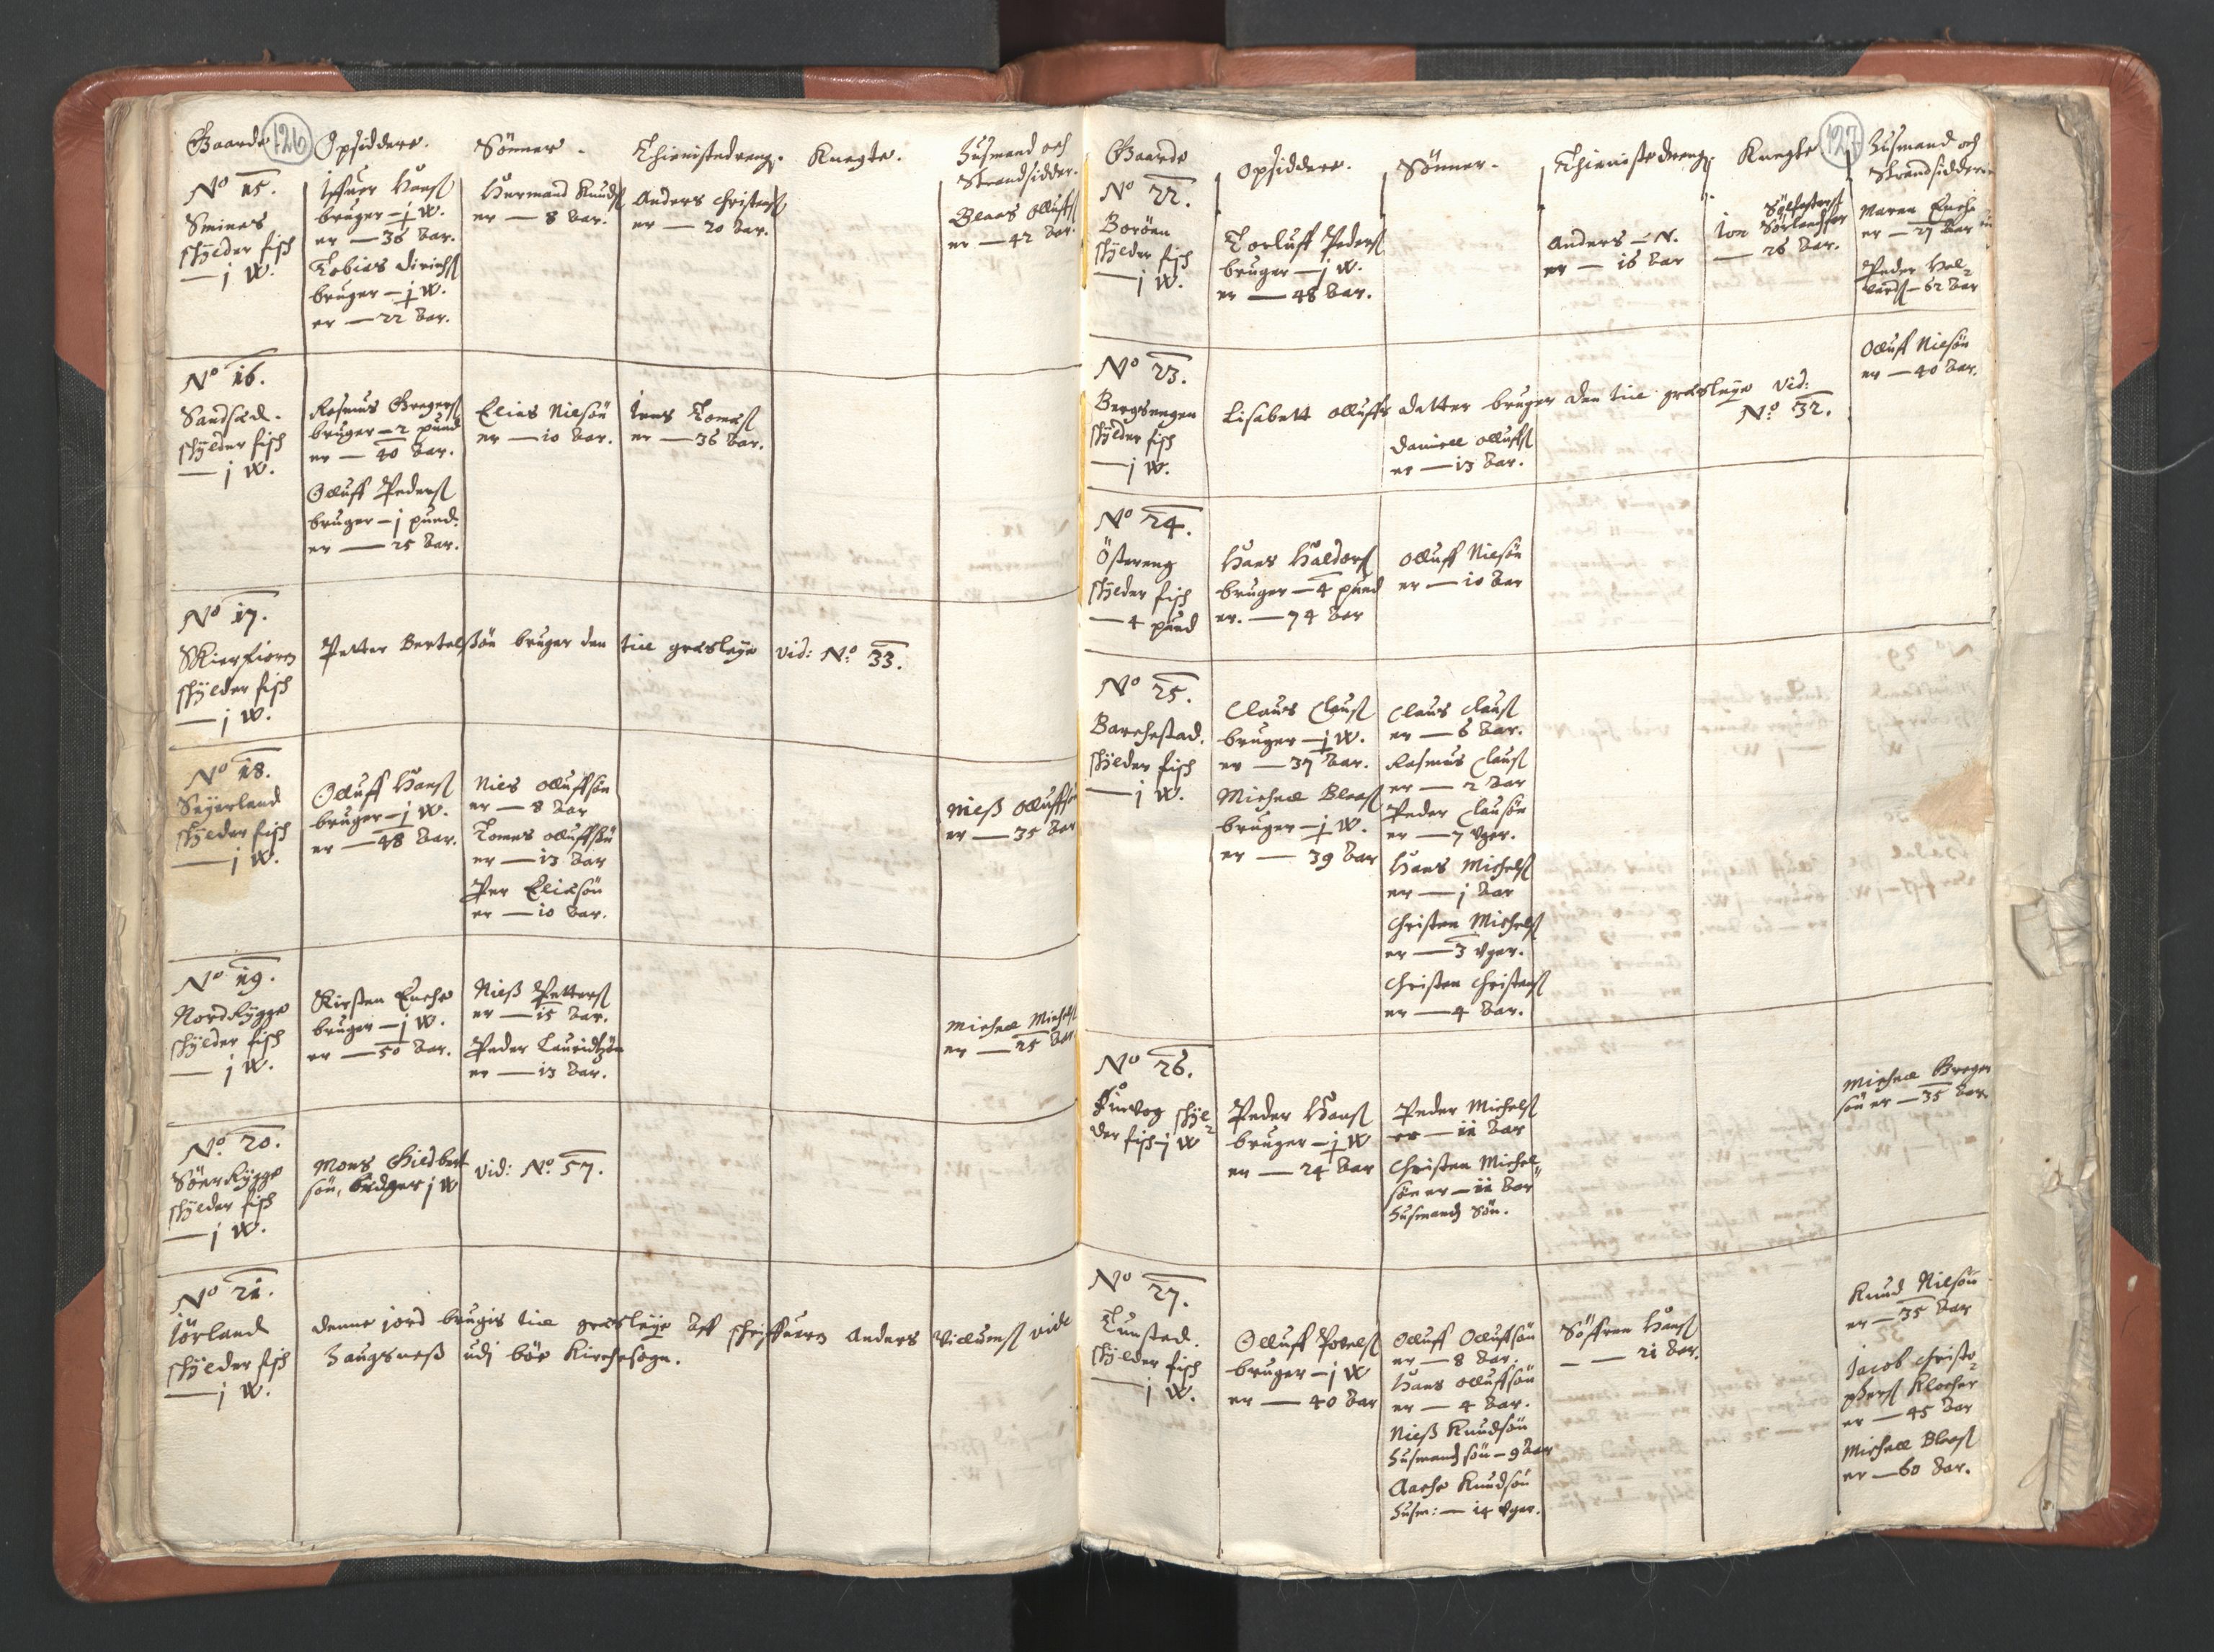 126
Gaarde Opsiddere. Sönner. Thienistedreng. Knegte. Husmand och
Strandsidder.
No 15.
Smines
schylder fisch
— j W.
Iffuer Hanss
bruger — ½ W.
er — 36 Aar.
Tobias Dirichss
bruger — ½ W.
er — 22 Aar.
Hermand Knudss
er — 8 Aar.
Anders Christenss
er — 20 Aar.
Claas Olluffss
er — 42 Aar.
No 16.
Sandsæd.
schylder fisch
— j W.
Rasmus Gregerss
bruger — 2 pund
er — 40 Aar.
Olluff Pederss
bruger — j pund.
er — 25 Aar.
Elias Nielsön
er — 10 Aar.
Jens Tomass
er — 36 Aar.
No 17.
Skierfiorn
schylder fisch
— j W.
Petter Bertelssön bruger den till græsleye vid: No 33.
No 18.
Seyerland
schylder fisch
— j W.
Olluff Hanss
bruger — j W.
er — 48 Aar.
Niels Olluffsön
er — 8 Aar
Tomas Olluffsön
er — 13 Aar
Per Eliasön
er — 10 Aar.
Nielss Olluffsö
er — 35 Aar
No 19.
Nordrygge
schylder fisch
— j W.
Kirsten Enche
bruger — j W.
er — 50 Aar.
Nielss Petterss
er — 15 Aar.
Peder Lauridtzön
er — 13 Aar.
Michael Michelss
er — 25 Aar
No 20.
Söerrygge
schylder fisch
— j W.
Mons Gieldbert
sön, bruger j W
vid: No 57.
No 21.
Jörland
schylder fisch
— j W.
denne jord brugis till græsleye aff schriffuern Anders Willumss vide
Haugsness udj böe Kirchesogn.
127
Gaarde Opsiddere. Sönner. Thienistedreng. Knegte Husmand och
Strandsiddere
No 22.
Boröen
schylder fisch
— j W.
Torluff Pederss
bruger — j W.
er — 48 Aar.
Anders — N.
er — 16 Aar
Jon Sörlandsfar
— 26 Aar.
Maren Enche
er — 27 Aar
Peder Hal-
vardss — 62 Aar
No 23.
Bergsengen
schylder fisch
— j W.
Lisabett Olluffs datter bruger den till græsleye vid:
No 32.
Daniell Olluffss
er — 13 Aar.
Olluff Nielsön
er — 40 Aar.
No 24.
Östereng
schylder fisch
— 4 pund
Hans Haldorss
bruger — 4 pund
er. — 74 Aar
Olluff Nielsön
er — 10 Aar
No 25.
Barchestad.
schylder fisch
— j W.
Claus Clauss
bruger — ½ W.
er — 37 Aar.
Michael Claass
bruger — ½ W.
er — 39 Aar
Claus Clauss
er — 6 Aar.
Rasmus Clauss
er — 2 Aar
Peder Clausön
er — 7 Uger.
Hans Michelss
er — j Aar
Christen Michelss
er — 3 Uger.
Christen Christenss
er — 4 Aar.
No 26.
Finvog schyl-
der fisch j W
Peder Hanss
bruger — ½ W
er — 24 Aar
Peder Michelss
er — 11 Aar
Christen Michel-
sön er — 11 Aar
Husmands Sön.
Michael Greger
sön er — 35 Aar
No 27.
Tunstad.
schylder fisch
— j W.
Olluff Povelss
bruger — j W
er — 40 Aar
Olluff Olluffsön
er — 8 Aar.
Hans Olluffsön
er — 4 Aar.
Nielss Knudsön
Husmands sön — 9 Aar
Aache Knudsön
Husm: — 14 Uger.
Söffren Hanss
— — 21 Aar.
Knud Nielsön
er — 35 Aar
Jacob Christo-
pherss Klocher
er — 45 Aar
Michael Claass
er — 60 Aar.